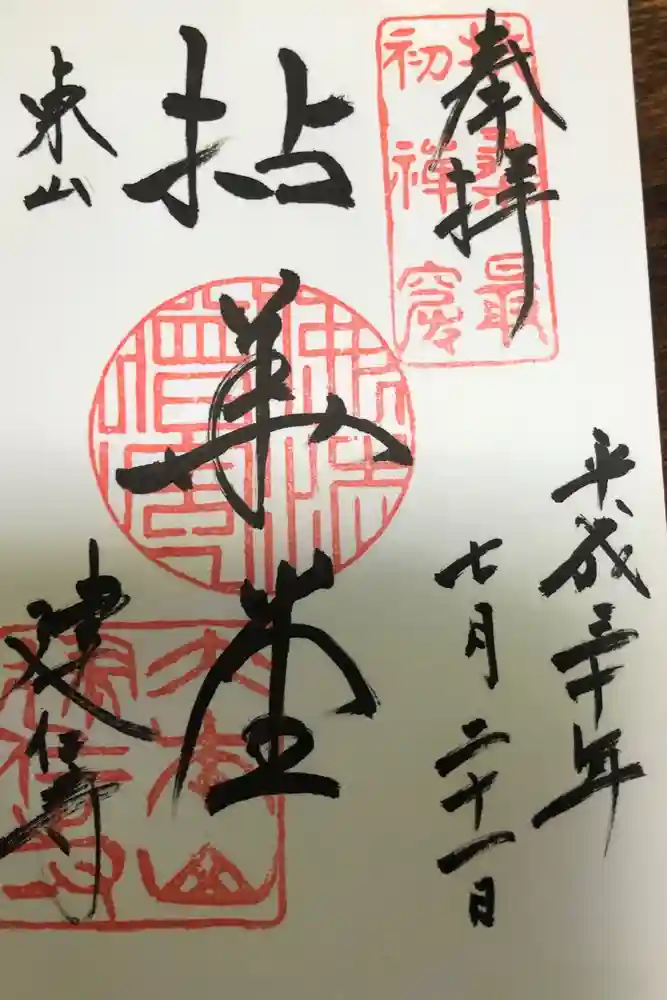 奉拝
扶桑最
初禅窟
平成三十年
七月二十一日
拈華堂
東山
建仁寺